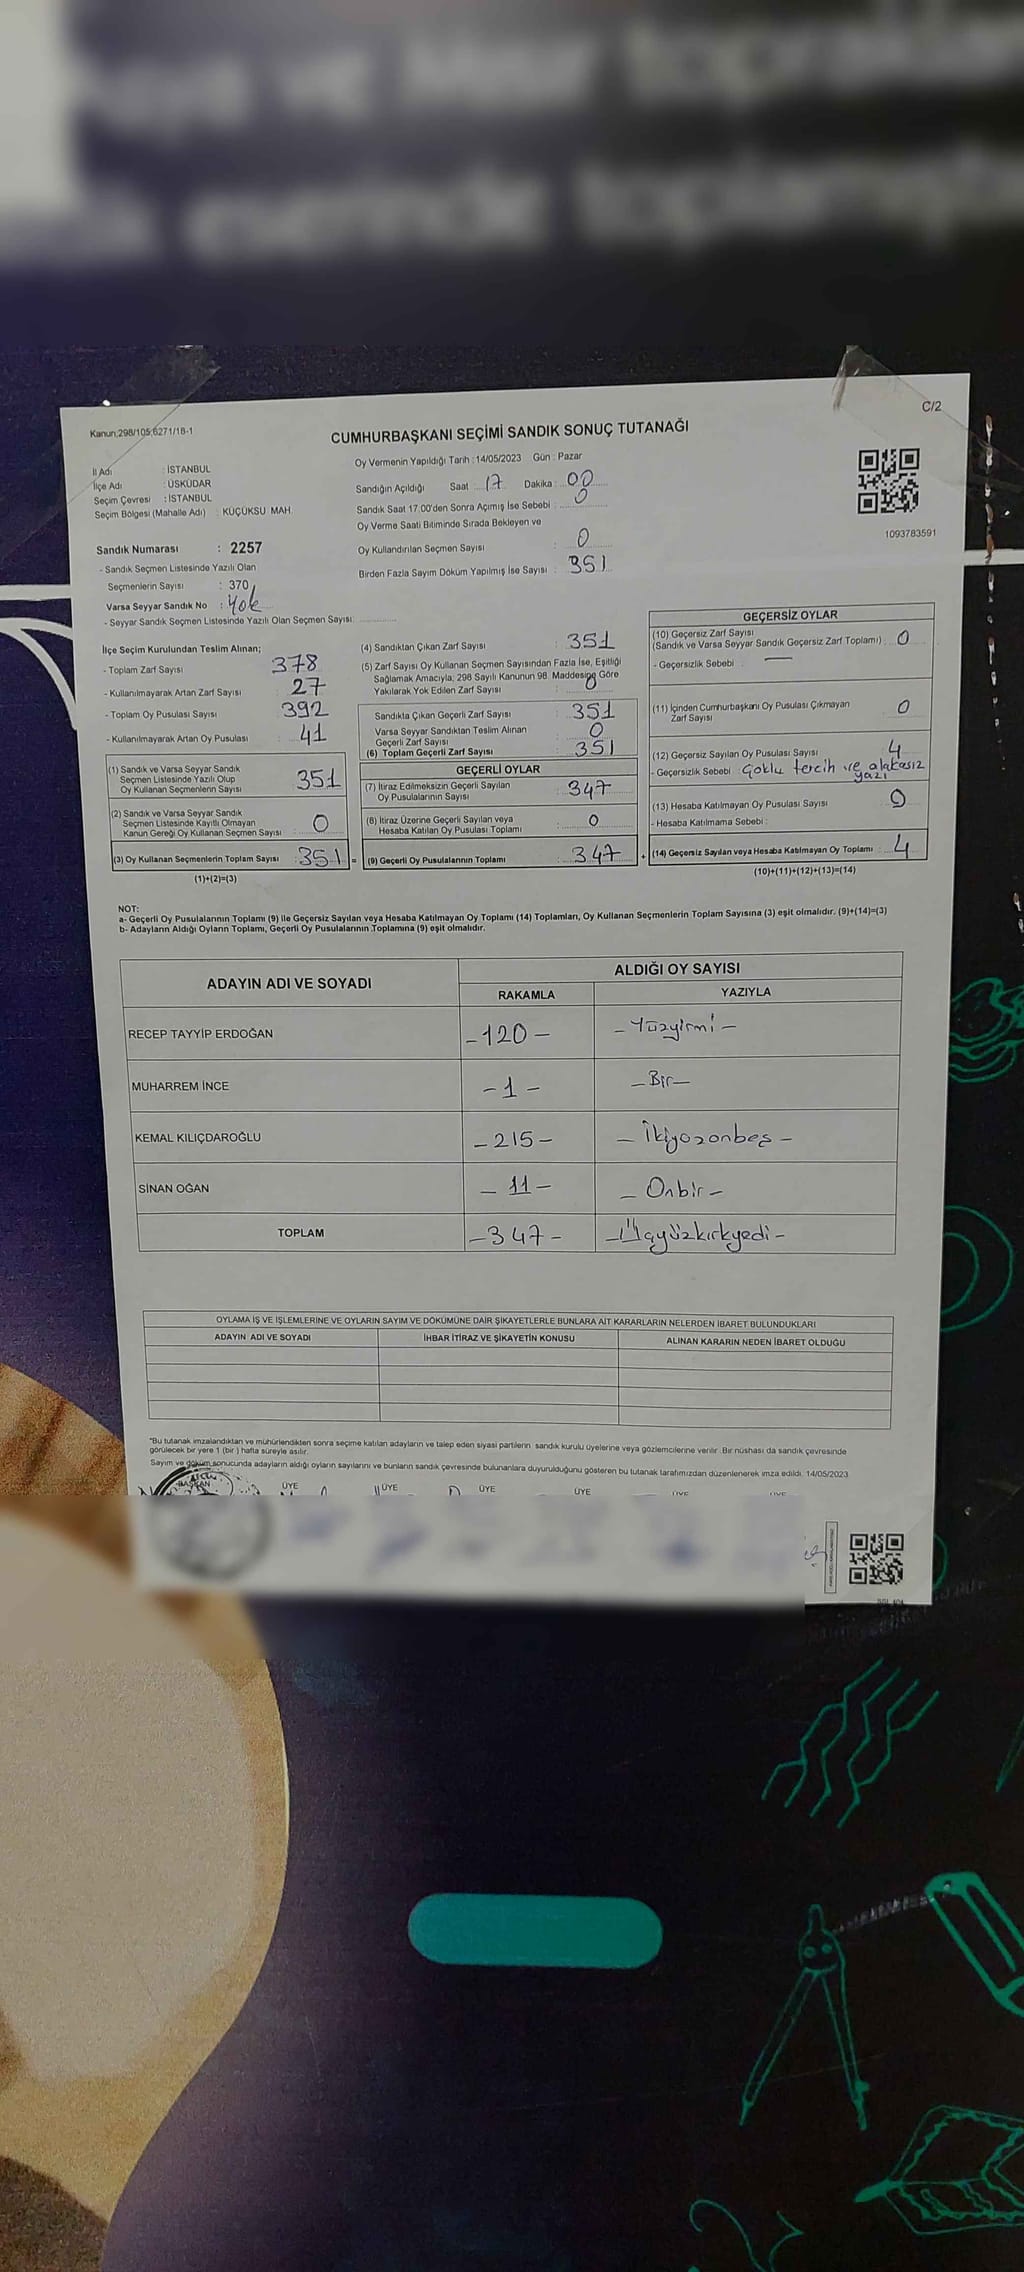 Kanun;298/105;6271/18-1
C/2
CUMHURBAŞKANI SEÇİMİ SANDIK SONUÇ TUTANAĞI
İl Adı : İSTANBUL
İlçe Adı : ÜSKÜDAR
Seçim Çevresi : İSTANBUL
Seçim Bölgesi (Mahalle Adı) : KÜÇÜKSU MAH.
Oy Vermenin Yapıldığı Tarih : 14/05/2023 Gün : Pazar
Sandığın Açıldığı Saat : 17 Dakika : 00
Sandık Saat 17:00'den Sonra Açımış İse Sebebi : 0
Oy Verme Saati Bitiminde Sırada Bekleyen ve
Oy Kullandırılan Seçmen Sayısı : 0
Birden Fazla Sayım Döküm Yapılmış İse Sayısı : 351
1093783591
Sandık Numarası : 2257
- Sandık Seçmen Listesinde Yazılı Olan
Seçmenlerin Sayısı : 370
Varsa Seyyar Sandık No : Yok
- Seyyar Sandık Seçmen Listesinde Yazılı Olan Seçmen Sayısı:
İlçe Seçim Kurulundan Teslim Alınan;
- Toplam Zarf Sayısı 378
- Kullanılmayarak Artan Zarf Sayısı : 27
- Toplam Oy Pusulası Sayısı : 392
- Kullanılmayarak Artan Oy Pusulası : 41
(1) Sandık ve Varsa Seyyar Sandık
Seçmen Listesinde Yazılı Olup
Oy Kullanan Seçmenlerin Sayısı : 351
(2) Sandık ve Varsa Seyyar Sandık
Seçmen Listesinde Kayıtlı Olmayan
Kanun Gereği Oy Kullanan Seçmen Sayısı : 0
(3) Oy Kullanan Seçmenlerin Toplam Sayısı : 351 =
(1)+(2)=(3)
(4) Sandıktan Çıkan Zarf Sayısı : 351
(5) Zarf Sayısı Oy Kullanan Seçmen Sayısından Fazla İse, Eşitliği
Sağlamak Amacıyla; 298 Sayılı Kanunun 98. Maddesine Göre
Yakılarak Yok Edilen Zarf Sayısı : 0
Sandıkta Çıkan Geçerli Zarf Sayısı : 351
Varsa Seyyar Sandıktan Teslim Alınan
Geçerli Zarf Sayısı : 0
(6) Toplam Geçerli Zarf Sayısı : 351
GEÇERLİ OYLAR
(7) İtiraz Edilmeksizin Geçerli Sayılan
Oy Pusulalarının Sayısı : 347
(8) İtiraz Üzerine Geçerli Sayılan veya
Hesaba Katılan Oy Pusulası Toplamı : 0
(9) Geçerli Oy Pusulalarının Toplamı : 347 +
GEÇERSİZ OYLAR
(10) Geçersiz Zarf Sayısı
(Sandık ve Varsa Seyyar Sandık Geçersiz Zarf Toplamı) : 0
- Geçersizlik Sebebi : —
(11) İçinden Cumhurbaşkanı Oy Pusulası Çıkmayan
Zarf Sayısı : 0
(12) Geçersiz Sayılan Oy Pusulası Sayısı : 4
- Geçersizlik Sebebi : Çoklu tercih ve alakasız
yazı
(13) Hesaba Katılmayan Oy Pusulası Sayısı : 0
- Hesaba Katılmama Sebebi :
(14) Geçersiz Sayılan veya Hesaba Katılmayan Oy Toplamı : 4
(10)+(11)+(12)+(13)=(14)
NOT:
a- Geçerli Oy Pusulalarının Toplamı (9) ile Geçersiz Sayılan veya Hesaba Katılmayan Oy Toplamı (14) Toplamları, Oy Kullanan Seçmenlerin Toplam Sayısına (3) eşit olmalıdır. (9)+(14)=(3)
b- Adayların Aldığı Oyların Toplamı, Geçerli Oy Pusulalarının Toplamına (9) eşit olmalıdır.
ADAYIN ADI VE SOYADI
ALDIĞI OY SAYISI
RAKAMLA YAZIYLA
RECEP TAYYİP ERDOĞAN -120- -Yüzyirmi-
MUHARREM İNCE -1- -Bir-
KEMAL KILIÇDAROĞLU -215- -İkiyüzonbeş-
SİNAN OĞAN -11- -Onbir-
TOPLAM -347- -Üçyüzkırkyedi-
OYLAMA İŞ VE İŞLEMLERİNE VE OYLARIN SAYIM VE DÖKÜMÜNE DAİR ŞİKAYETLERLE BUNLARA AİT KARARLARIN NELERDEN İBARET BULUNDUKLARI
ADAYIN ADI VE SOYADI İHBAR İTİRAZ VE ŞİKAYETİN KONUSU ALINAN KARARIN NEDEN İBARET OLDUĞU
*Bu tutanak imzalandıktan ve mühürlendikten sonra seçime katılan adayların ve talep eden siyasi partilerin sandık kurulu üyelerine veya gözlemcilerine verilir. Bir nüshası da sandık çevresinde
görülecek bir yere 1 (bir ) hafta süreyle asılır.
Sayım ve döküm sonucunda adayların aldığı oyların sayılarını ve bunların sandık çevresinde bulunanlara duyurulduğunu gösteren bu tutanak tarafımızdan düzenlenerek imza edildi. 14/05/2023
BAŞKAN ÜYE ÜYE ÜYE ÜYE ÜYE ÜYE